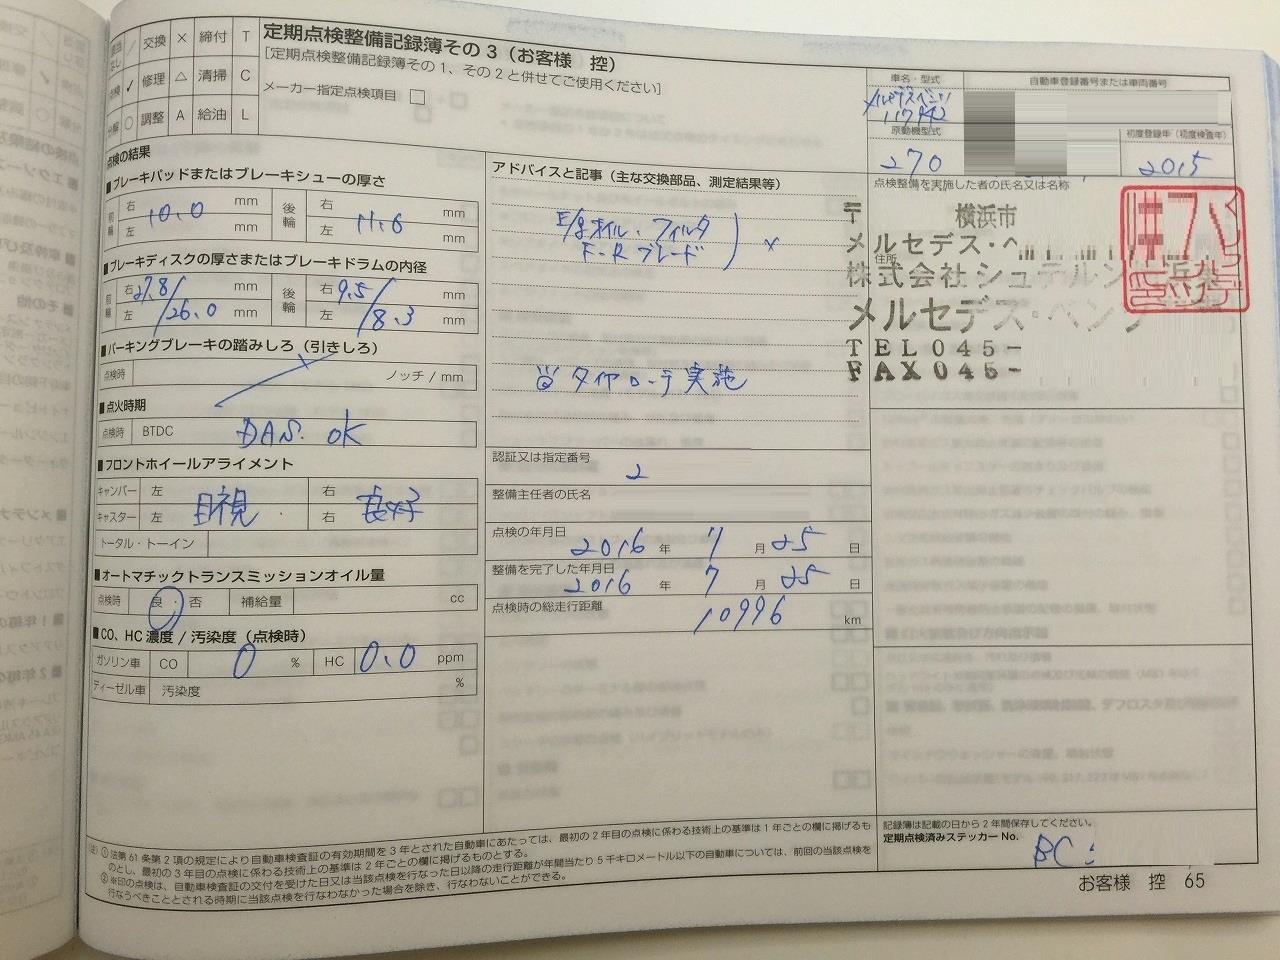 交換 × 締付 T
点検 ✓ 修理 △ 清掃 C
分解 ○ 調整 A 給油 L
定期点検整備記録簿その3（お客様 控）
[定期点検整備記録簿その1、その2と併せてご使用ください]
メーカー指定点検項目 □
点検の結果
■ブレーキパッドまたはブレーキシューの厚さ
前輪 右 左 10.0 mm mm 後輪 右 左 11.6 mm mm
■ブレーキディスクの厚さまたはブレーキドラムの内径
前輪 右 27.8/ 左 /26.0 mm mm 後輪 右 9.5/ 左 /8.3 mm mm
■パーキングブレーキの踏みしろ（引きしろ）
点検時 ノッチ / mm
■点火時期
点検時 BTDC DAS. OK
■フロントホイールアライメント
キャンバー 左 右
キャスター 左 目視 右 良好
トータル・トーイン
■オートマチックトランスミッションオイル量
点検時 良・否 補給量 cc
■CO、HC濃度 / 汚染度（点検時）
ガソリン車 CO 0 % HC 0.0 ppm
ディーゼル車 汚染度 %
アドバイスと記事（主な交換部品、測定結果等）
E/gオイル、フィルタ
F・R ブレード ×
タイヤローテ実施
認証又は指定番号 2
整備主任者の氏名
点検の年月日 2016 年 7 月 25 日
整備を完了した年月日
2016 年 7 月 25 日
点検時の総走行距離 10996 km
車名・型式
メルセデスベンツ
117942
自動車登録番号または車両番号
原動機型式
270
初度登録年（初度検査年）
2015
点検整備を実施した者の氏名又は名称
〒 横浜市
メルセデス・ベ
住所
株式会社シュテルン
メルセデス・ベンツ
TEL045-
FAX045-
(注) ① 法第61条第2項の規定により自動車検査証の有効期間を3年とされた自動車にあたっては、最初の2年目の点検に係わる技術上の基準は1年ごとの欄に掲げるも
のとし、最初の3年目の点検に係わる技術上の基準は2年ごとの欄に掲げるものとする。
② ※印の点検は、自動車検査証の交付を受けた日又は当該点検を行なった日以降の走行距離が年間当たり5千キロメートル以下の自動車については、前回の当該点検を
行なうべきこととされる時期に当該点検を行なわなかった場合を除き、行なわないことができる。
記録簿は記載の日から2年間保存してください。
定期点検済みステッカーNo.
BC
お客様 控 65